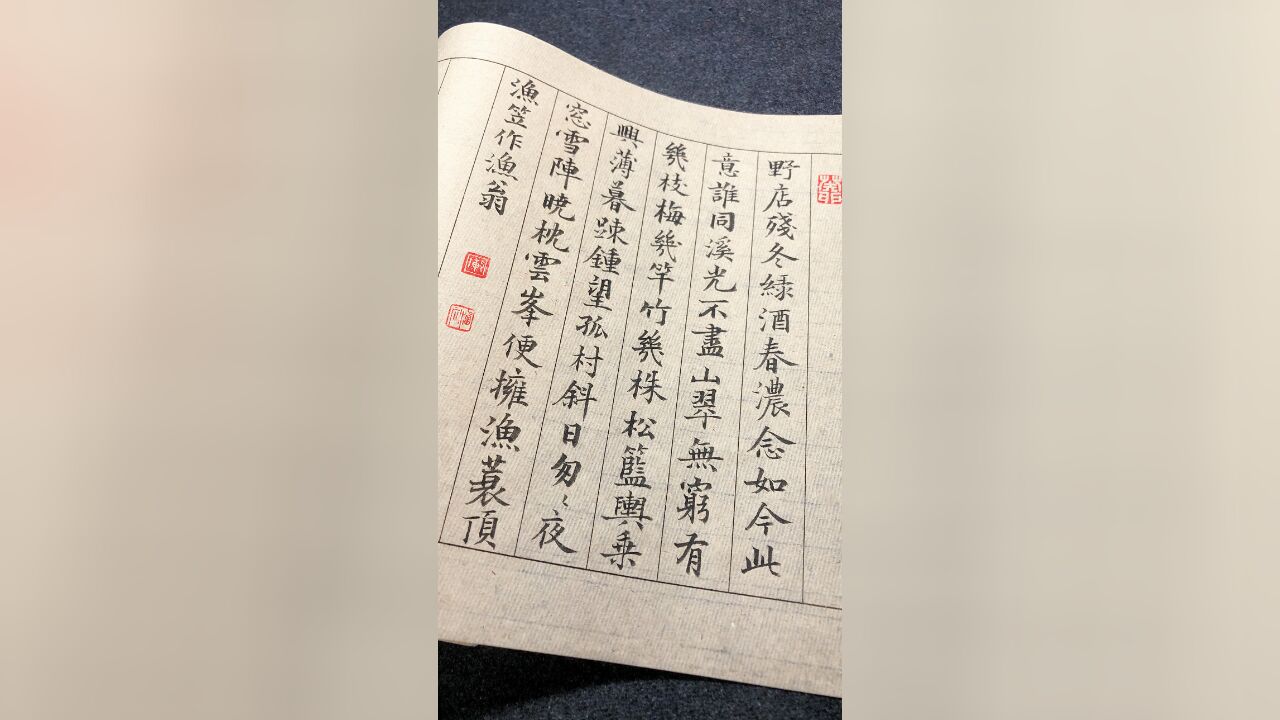 野店殘冬緑酒春濃念如今此
意誰同溪光不盡山翠無窮有
幾枝梅幾竿竹幾株松籃輿乗
興薄暮踈鍾望孤村斜日匆〻夜
窓雪陣曉枕雲峯便擁漁蓑頂
漁笠作漁翁